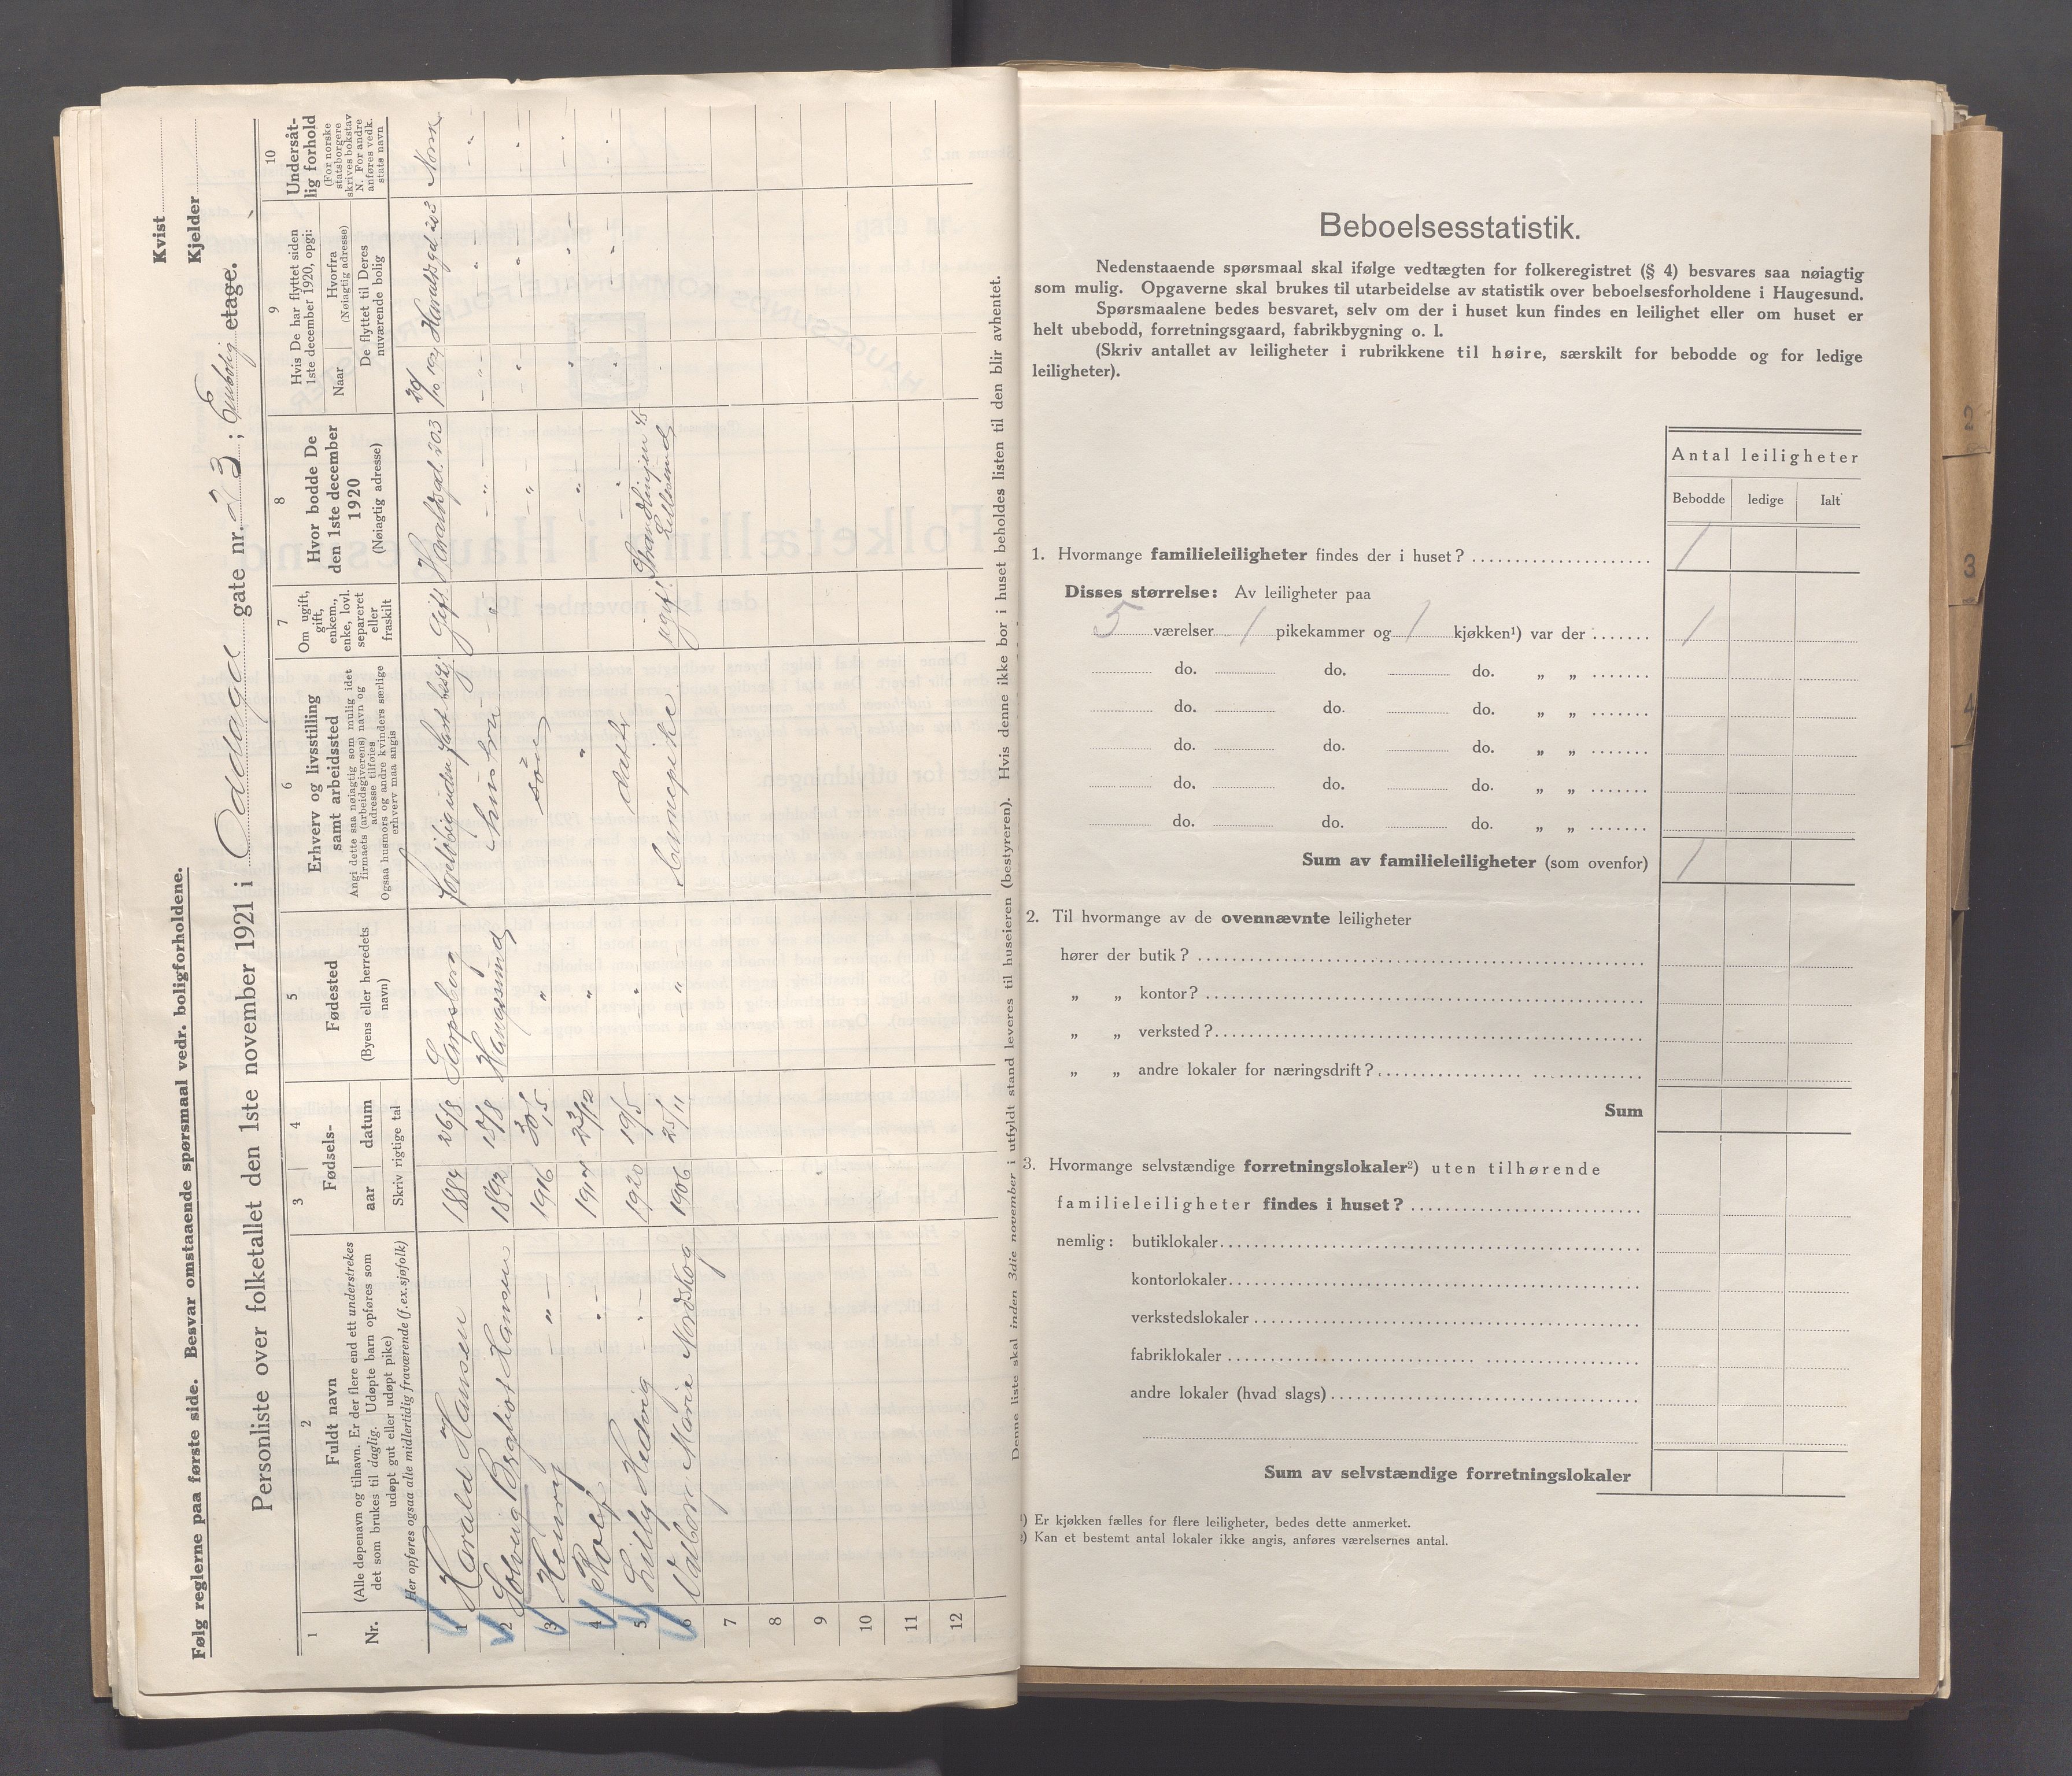 Kvist
Følg reglerne paa første side. Besvar omstaaende spørsmaal vedr. boligforholdene.
Kjelder
Personliste over folketallet den 1ste november 1921 i Oddagd gate nr. 23; Enebolig etage.
1
Nr.
2
Fuldt navn
(Alle døpenavn og tilnavn. Er der flere end ett understrekes
det som brukes til daglig. Udøpte barn opføres som
udøpt gut eller udøpt pike)
Her opføres ogsaa alle midlertidig fraværende (f.ex.sjøfolk)
3 4
Fødsels-
aar datum
Skriv rigtige tal
5
Fødested
(Byens eller herredets
navn)
6
Erhverv og livsstilling
samt arbeidssted
Angi dette saa nøiagtig som mulig idet
firmaets (arbeidsgiverens) navn og
adresse tilføies
Ogsaa husmors og andre kvinders særlige
erhverv maa angis
7
Om ugift,
gift,
enkem.,
enke, lovl.
separeret
eller
fraskilt
8
Hvor bodde De
den 1ste december
1920
(Nøiagtig adresse)
9
Hvis De har flyttet siden
1ste december 1920, opgi:
Naar
Hvorfra
(Nøiagtig adresse)
De flyttet til Deres
nuværende bolig
10
Undersåt-
lig forhold
(For norske
statsborgere
skrives bokstav
N. For andre
anføres vedk.
stats navn
1 Harald Hansen 1884 26/8 Sarpsborg gift Haraldsgd. 203 Haraldsgd. 203 Norsk
2 Solveig Bergliot Hansen 1892 15/8 Haugesund hustru - " - - " - - " - - " - - " -
3 Henry - " - 1916 30/5 " søn - " - - " - - " - - " -
4 Rolf - " - 23/12 " " - " - " " - " -
5 Lilly Hedvig - " - 1920 19/5 - " - datter - " - " " - " -
6 Valborg Marie Nordskog 1906 25/11 - " - barnepike ugift
7
8
9
10
11
12
Denne liste skal inden 3die november i utfyldt stand leveres til huseieren (bestyreren). Hvis denne ikke bor i huset beholdes listen til den blir avhentet.
Beboelsesstatistik.
Nedenstaaende spørsmaal skal ifølge vedtægten for folkeregistret (§ 4) besvares saa nøiagtig
som mulig. Opgaverne skal brukes til utarbeidelse av statistik over beboelsesforholdene i Haugesund.
Spørsmaalene bedes besvaret, selv om der i huset kun findes en leilighet eller om huset er
helt ubebodd, forretningsgaard, fabrikbygning o. l.
(Skriv antallet av leiligheter i rubrikkene til høire, særskilt for bebodde og for ledige
leiligheter).
Antal leiligheter
Bebodde ledige Ialt
1. Hvormange familieleiligheter findes der i huset? 1
Disses størrelse: Av leiligheter paa
5 værelser 1 pikekammer og 1 kjøkken¹) var der 1
do. do. do. „ „
do. do. do. „ „
do. do. do. „ „
do. do. do. „ „
do. do. do. „ „
Sum av familieleiligheter (som ovenfor) 1
2. Til hvormange av de ovennævnte leiligheter
hører der butik?
„ „ kontor?
„ „ verksted?
„ „ andre lokaler for næringsdrift?
Sum
3. Hvormange selvstændige forretningslokaler²) uten tilhørende
familieleiligheter findes i huset?
nemlig: butiklokaler
kontorlokaler
verkstedslokaler
fabriklokaler
andre lokaler (hvad slags)
Sum av selvstændige forretningslokaler
¹) Er kjøkken fælles for flere leiligheter, bedes dette anmerket.
²) Kan et bestemt antal lokaler ikke angis, anføres værelsernes antal.
2
3
4